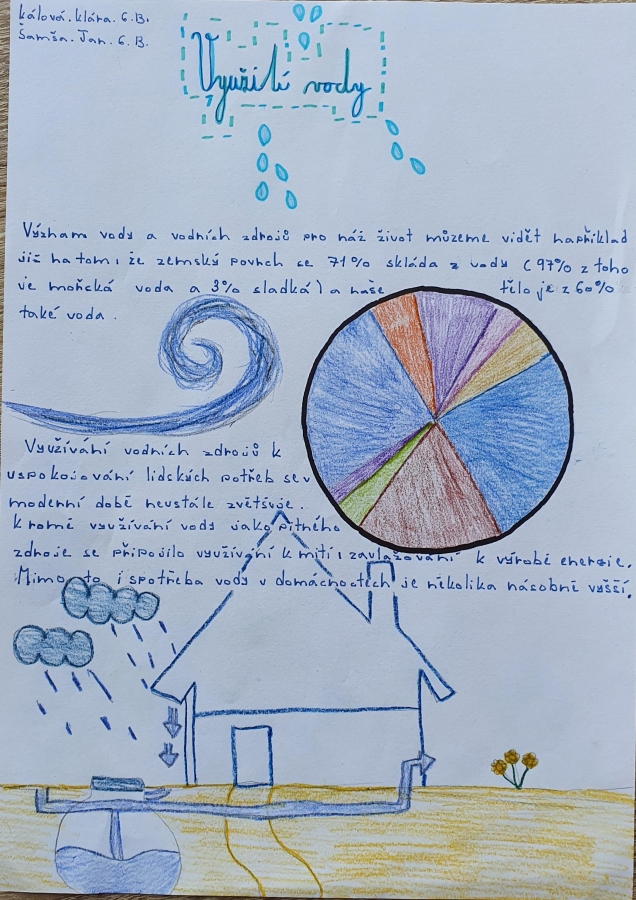 kálová.klára.6.B.
Šamša.Jan.6.B.
Využití vody
Význam vody a vodních zdrojů pro náž život můzeme vidět například
již na tom, že zemský povrch se 71% skládá z vody (97% z toho
je mořská voda a 3% sladká) a naše tílo je z 60%
také voda.
Využívání vodních zdrojů k
uspokojování lidských potřeb se v
moderní době neustále zvětšuje.
Kromě využívání vody jako pitného
zdroje se připojilo využívání k mití, zavlažování k výrobě energie.
Mimo to i spotřeba vody v domácnoctech je několika násobně vyšší.